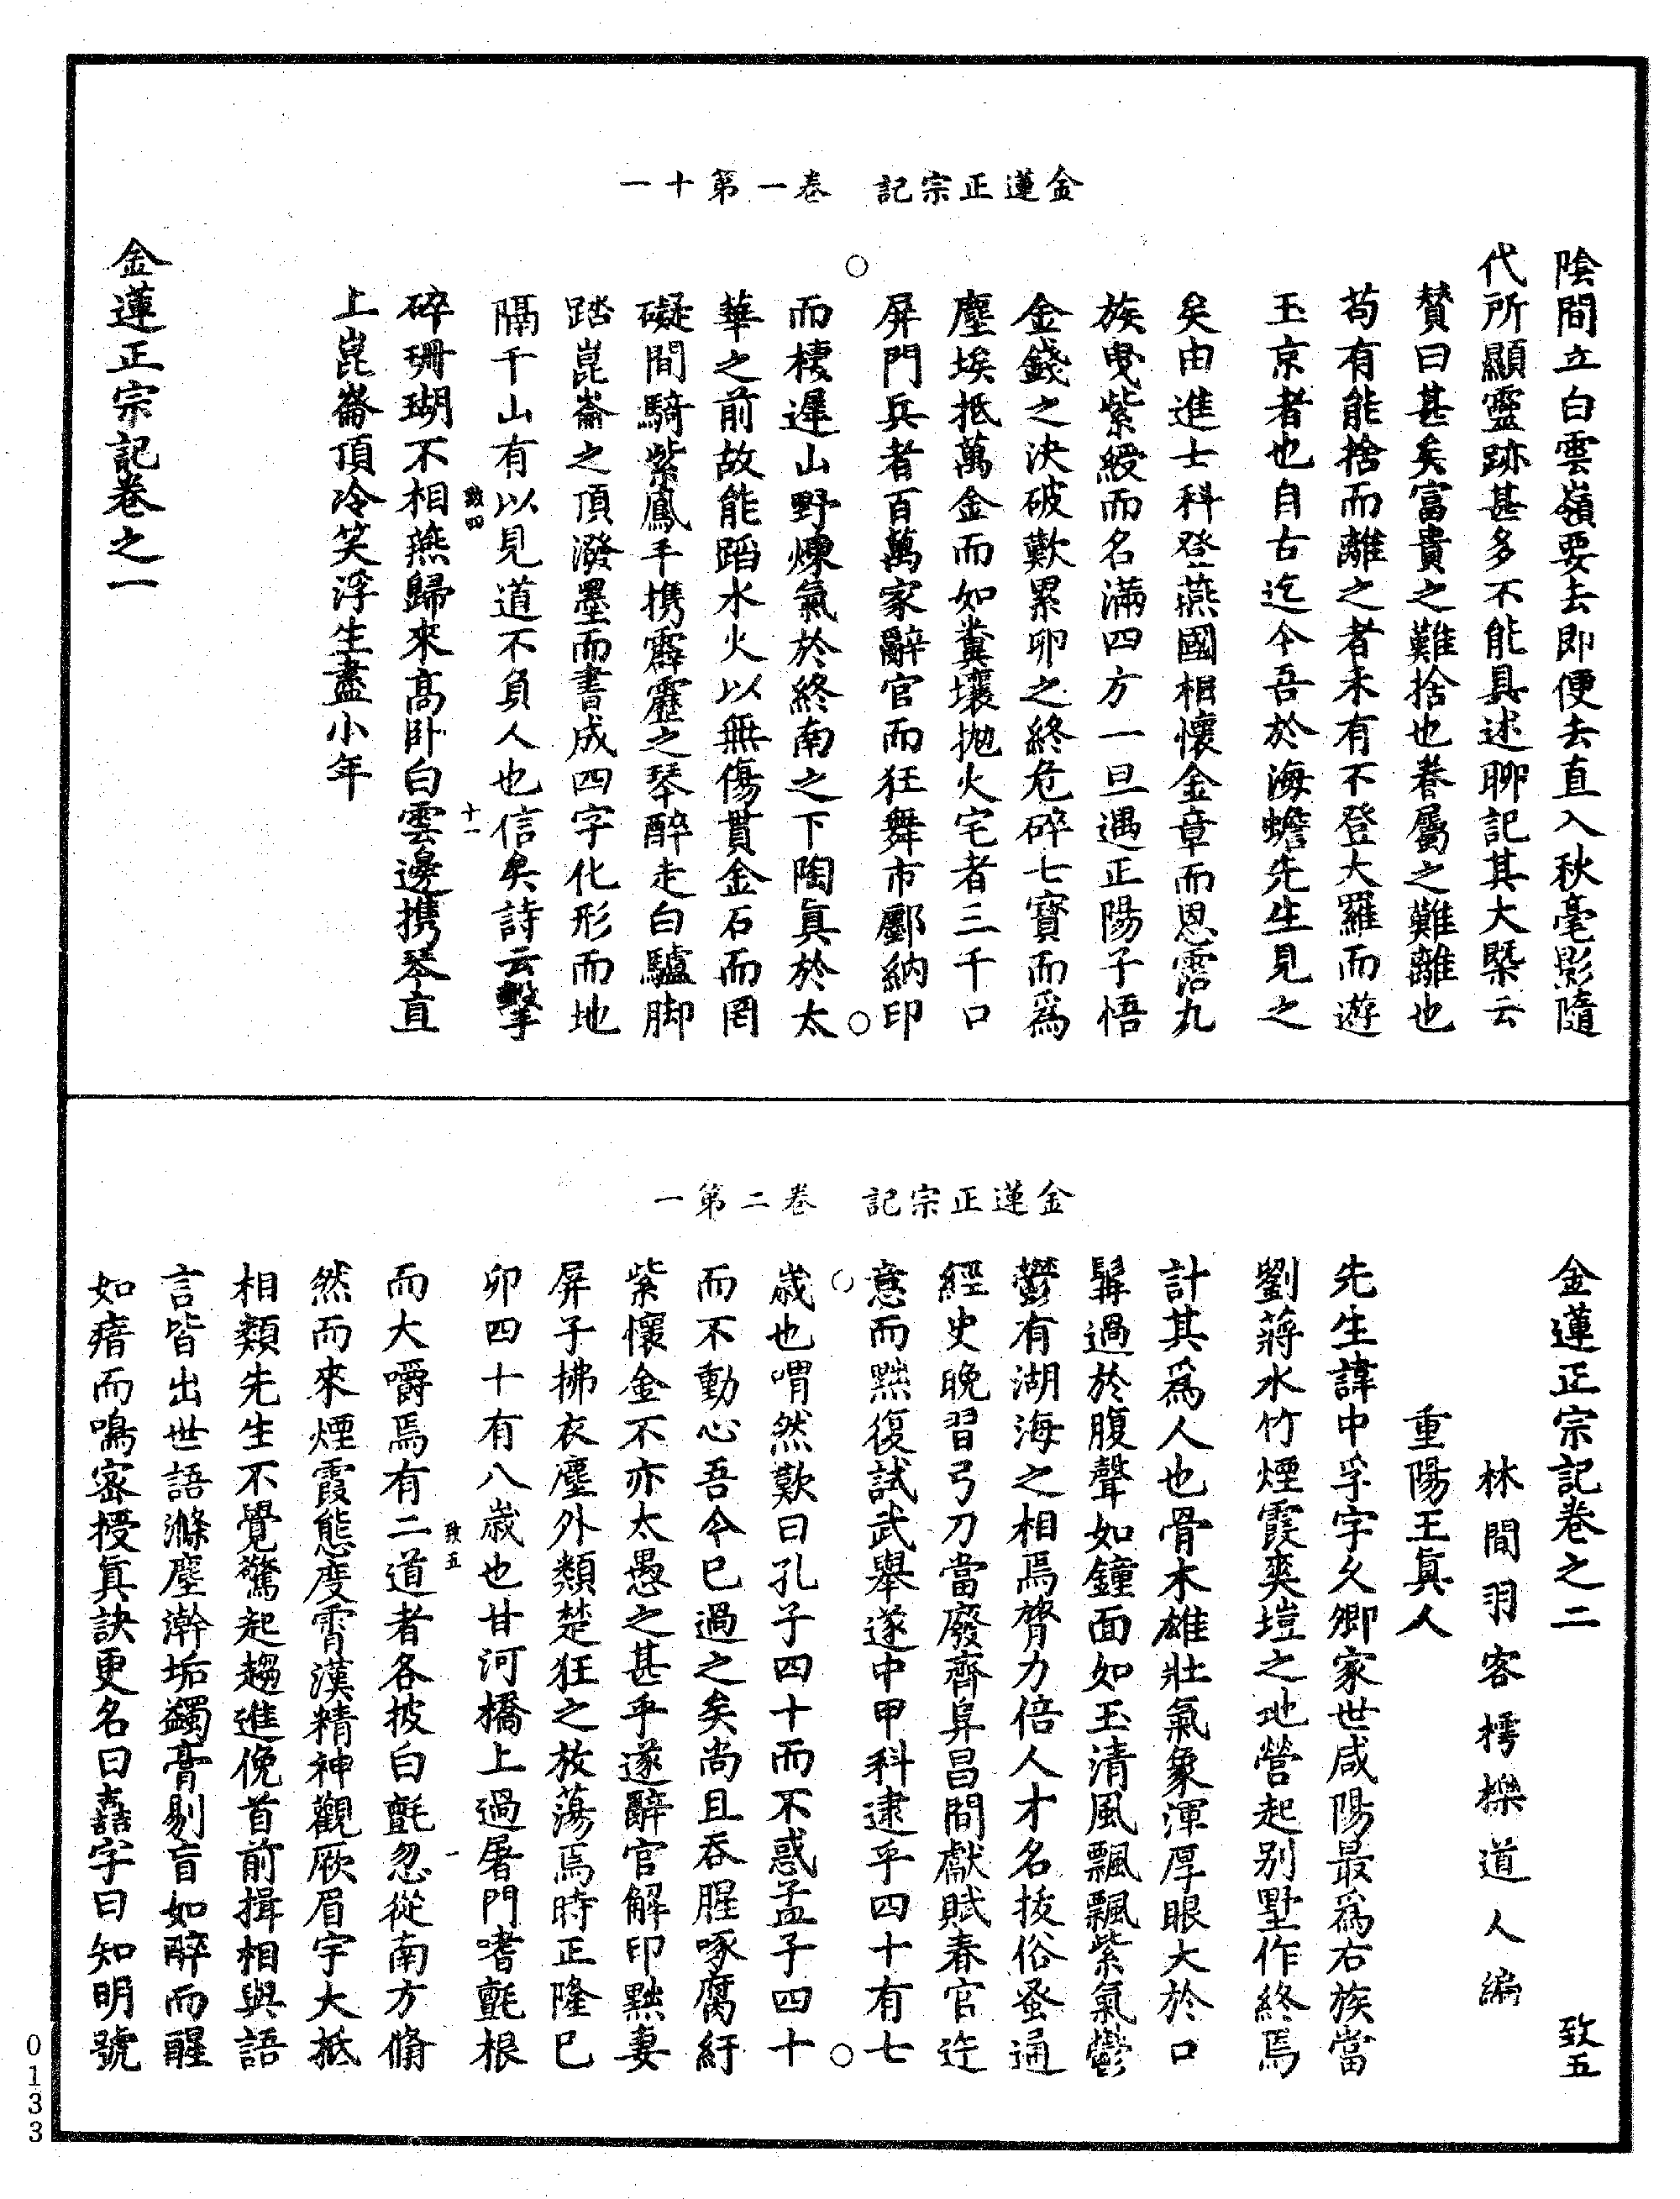 金蓮正宗記　卷一第十一
陰間立白雲嶺要去即便去直入秋毫影隨
代所顯靈跡甚多不能具述聊記其大槩云
賛曰甚矣富貴之難捨也眷屬之難離也
苟有能捨而離之者未有不登大羅而遊
玉京者也自古迄今吾於海蟾先生見之
矣由進士科登燕國相懷金章而恩霑九
族曳紫綬而名滿四方一旦遇正陽子悟
金錢之決破歎累卵之終危碎七寶而爲
塵埃抵萬金而如糞壤拋火宅者三千口
屏門兵者百萬家辭官而狂舞市鄽納印
而棲遲山野煉氣於終南之下陶眞於太
華之前故能蹈水火以無傷貫金石而罔
礙間騎紫鳳手携霹靂之琴醉走白驢脚
踏崑崙之頂潑墨而書成四字化形而地
隔千山有以見道不負人也信矣詩云擊
致四　十一
碎珊瑚不相燕歸來高卧白雲邊携琴直
上崑崙頂冷笑浮生盡小年
金蓮正宗記卷之一
金蓮正宗記　卷二第一
金蓮正宗記卷之二　致五
林間羽客樗櫟道人編
重陽王眞人
先生諱中孚字久卿家世咸陽最爲右族當
劉蔣水竹煙霞爽塏之地營起别墅作終焉
計其爲人也骨木雄壯氣象渾厚眼大於口
髯過於腹聲如鐘面如玉清風飄飄紫氣鬱
鬱有湖海之相焉膂力倍人才名拔俗蚤通
經史晚習弓刀當廢齊阜昌間獻賦春官迕
意而黜復試武舉遂中甲科逮乎四十有七
歲也喟然歎曰孔子四十而不惑孟子四十
而不動心吾今已過之矣尚且吞腥啄腐紆
紫懷金不亦太愚之甚乎遂辭官解印黜妻
屏子拂衣塵外類楚狂之放蕩焉時正隆已
卯四十有八歲也甘河橋上過屠門嗜氈根
致五　一
而大嚼焉有二道者各披白氈忽從南方翛
然而來煙霞態度霄漢精神觀厥眉宇大抵
相類先生不覺驚起趨進俛首前揖相與語
言皆出世語滌塵澣垢蠲膏剔盲如醉而醒
如瘖而鳴密授眞訣更名曰嚞字曰知明號
0133